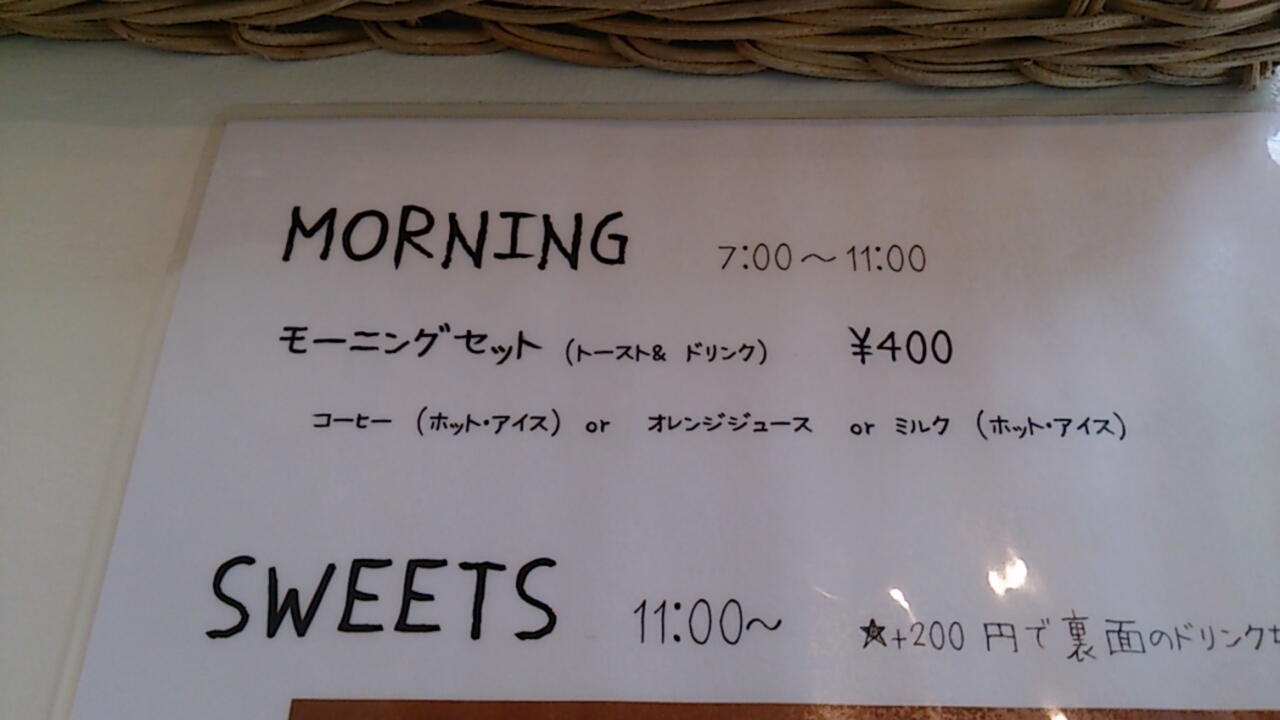 MORNING 7:00～11:00
モーニングセット (トースト& ドリンク) ¥400
コーヒー (ホット・アイス) or オレンジジュース or ミルク (ホット・アイス)
SWEETS 11:00～ ★+200 円で裏面のドリンク